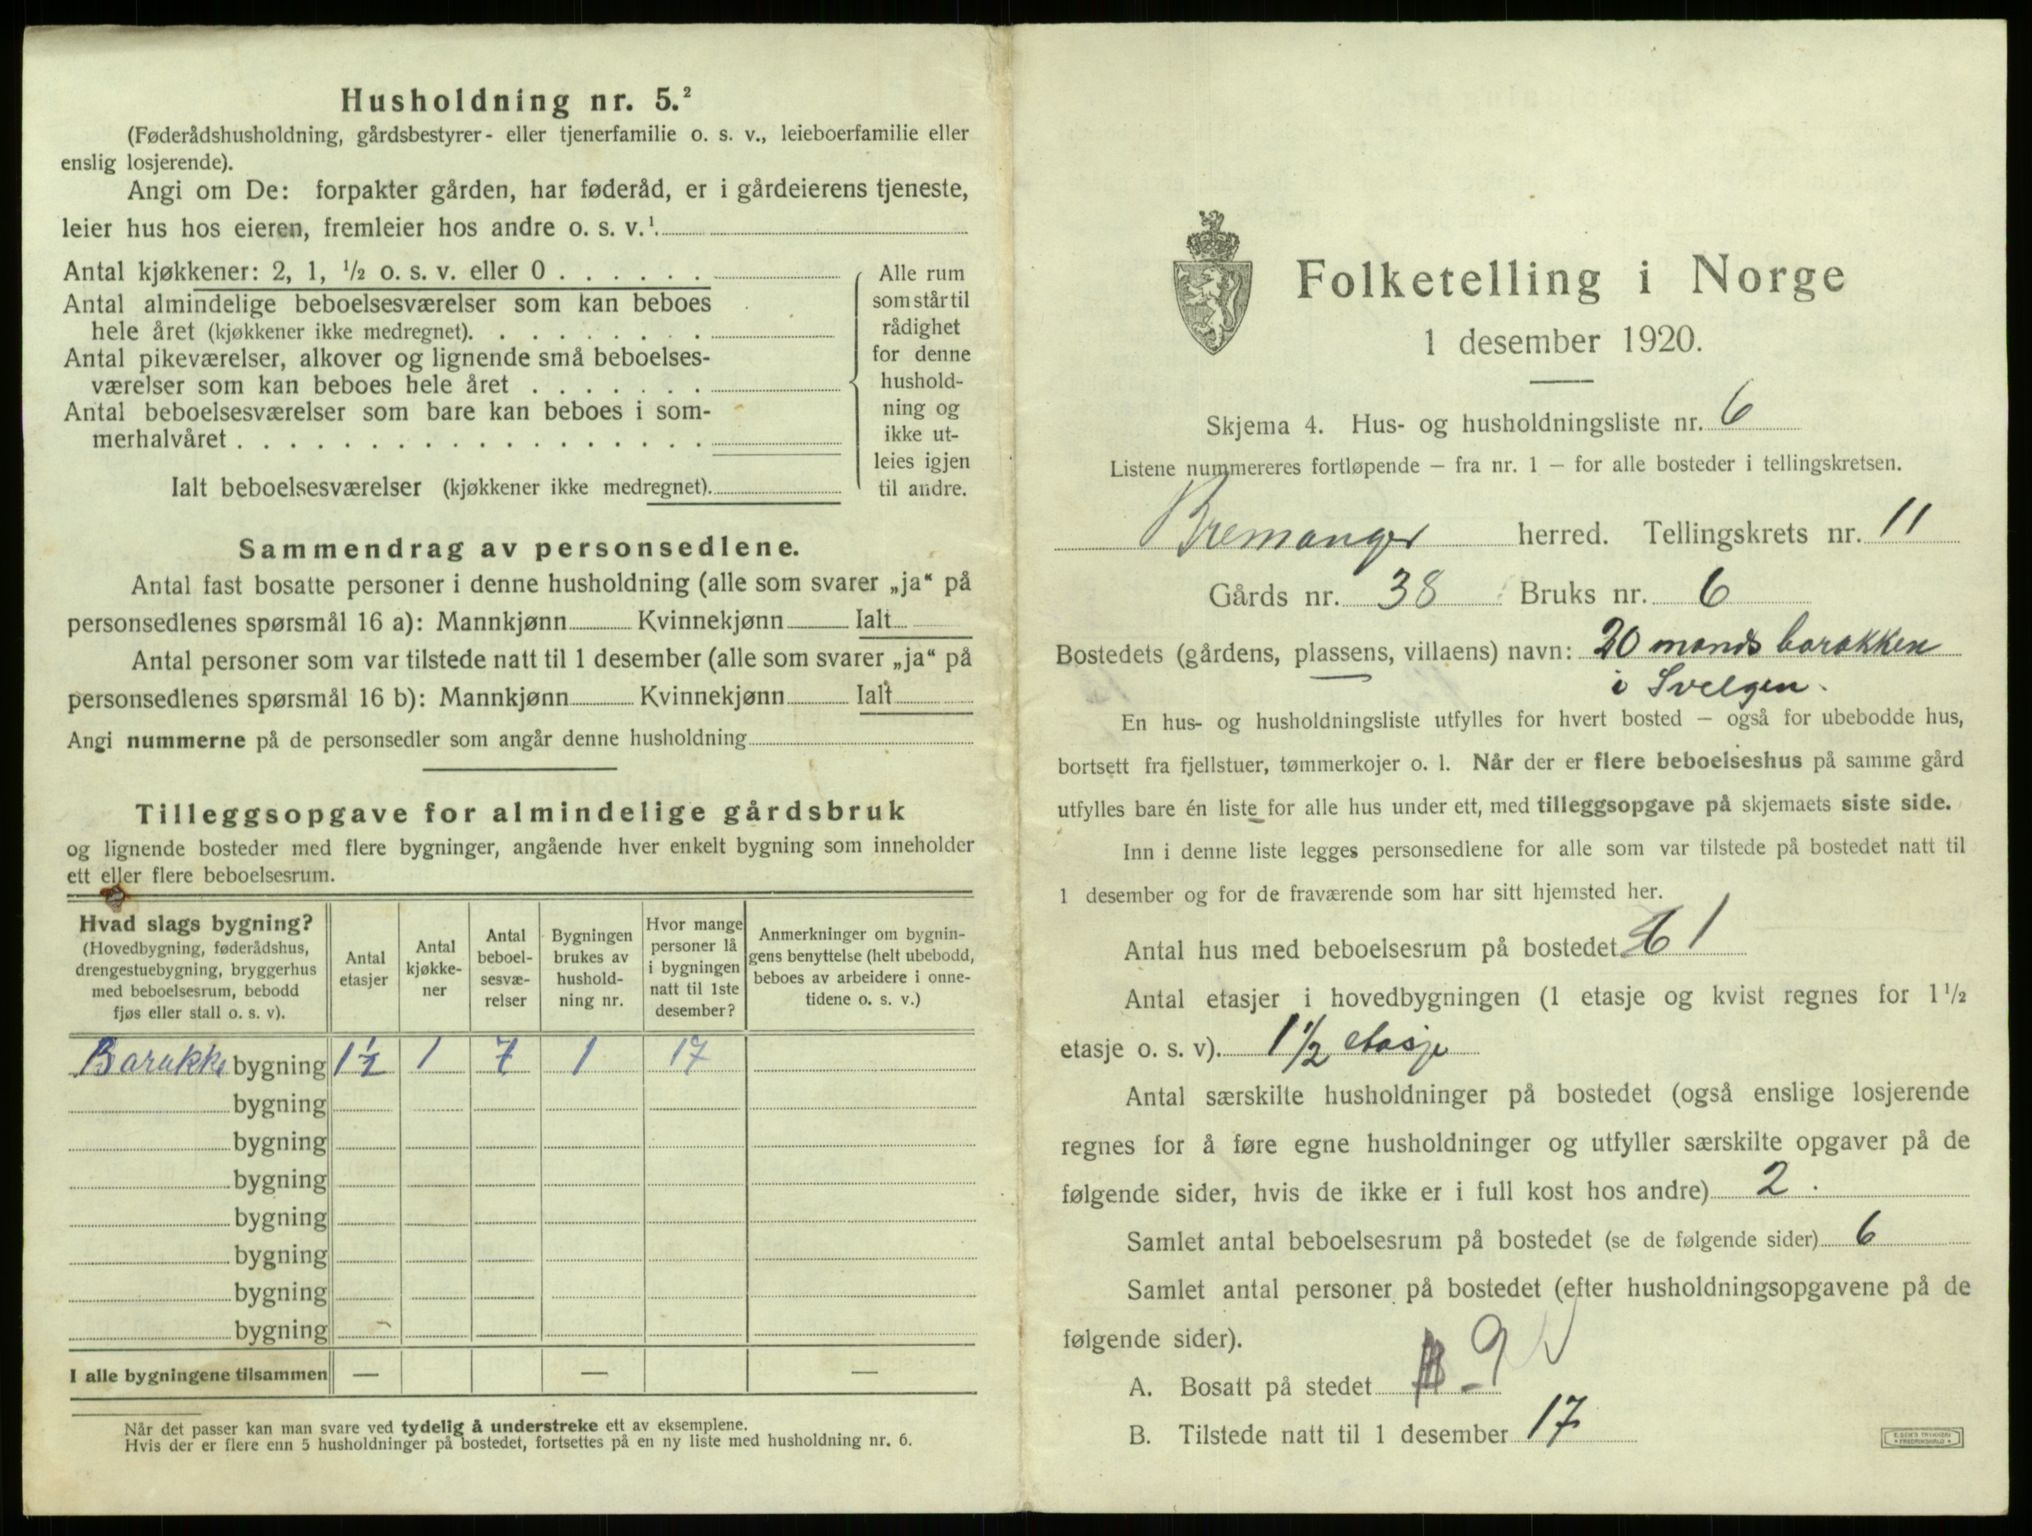 Husholdning nr. 5.²
(Føderådshusholdning, gårdsbestyrer- eller tjenerfamilie o. s. v., leieboerfamilie eller
enslig losjerende).
Angi om De: forpakter gården, har føderåd, er i gårdeierens tjeneste,
leier hus hos eieren, fremleier hos andre o. s. v.¹
Antal kjøkkener: 2, 1, ½ o. s. v. eller 0
Antal almindelige beboelsesværelser som kan beboes
hele året (kjøkkener ikke medregnet)
Antal pikeværelser, alkover og lignende små beboelses-
værelser som kan beboes hele året
Antal beboelsesværelser som bare kan beboes i som-
merhalvåret
Ialt beboelsesværelser (kjøkkener ikke medregnet)
Alle rum
som står til
rådighet
for denne
hushold-
ning og
ikke ut-
leies igjen
til andre.
Sammendrag av personsedlene.
Antal fast bosatte personer i denne husholdning (alle som svarer „ja“ på
personsedlenes spørsmål 16 a): Mannkjønn Kvinnekjønn Ialt
Antal personer som var tilstede natt til 1 desember (alle som svarer „ja“ på
personsedlenes spørsmål 16 b): Mannkjønn Kvinnekjønn Ialt
Angi nummerne på de personsedler som angår denne husholdning
Tilleggsopgave for almindelige gårdsbruk
og lignende bosteder med flere bygninger, angående hver enkelt bygning som inneholder
ett eller flere beboelsesrum.
Hvad slags bygning?
(Hovedbygning, føderådshus,
drengestuebygning, bryggerhus
med beboelsesrum, bebodd
fjøs eller stall o. s. v).
Antal
etasjer
Antal
kjøkke-
ner
Antal
beboel-
sesvæ-
relser
Bygningen
brukes av
hushold-
ning nr.
Hvor mange
personer lå
i bygningen
natt til 1ste
desember?
Anmerkninger om bygnin-
gens benyttelse (helt ubebodd,
beboes av arbeidere i onne-
tidene o. s. v.)
Barakke bygning 1½ 1 7 1 17
bygning
bygning
bygning
bygning
bygning
bygning
bygning
I alle bygningene tilsammen — — —
Når det passer kan man svare ved tydelig å understreke ett av eksemplene.
Hvis der er flere enn 5 husholdninger på bostedet, fortsettes på en ny liste med husholdning nr. 6.
Folketelling i Norge
1 desember 1920.
Skjema 4. Hus- og husholdningsliste nr. 6
Listene nummereres fortløpende – fra nr. 1 – for alle bosteder i tellingskretsen.
Bremanger herred. Tellingskrets nr. 11
Gårds nr. 38 Bruks nr. 6
Bostedets (gårdens, plassens, villaens) navn: 20 mands barakken
i Svelgen.
En hus- og husholdningsliste utfylles for hvert bosted – også for ubebodde hus,
bortsett fra fjellstuer, tømmerkojer o. l. Når der er flere beboelseshus på samme gård
utfylles bare én liste for alle hus under ett, med tilleggsopgave på skjemaets siste side.
Inn i denne liste legges personsedlene for alle som var tilstede på bostedet natt til
1 desember og for de fraværende som har sitt hjemsted her.
Antal hus med beboelsesrum på bostedet 1
Antal etasjer i hovedbygningen (1 etasje og kvist regnes for 1½
etasje o. s. v). 1½ etasje
Antal særskilte husholdninger på bostedet (også enslige losjerende
regnes for å føre egne husholdninger og utfyller særskilte opgaver på de
følgende sider, hvis de ikke er i full kost hos andre) 2.
Samlet antal beboelsesrum på bostedet (se de følgende sider) 6
Samlet antal personer på bostedet (efter husholdningsopgavene på de
følgende sider).
A. Bosatt på stedet 9
B. Tilstede natt til 1 desember 17